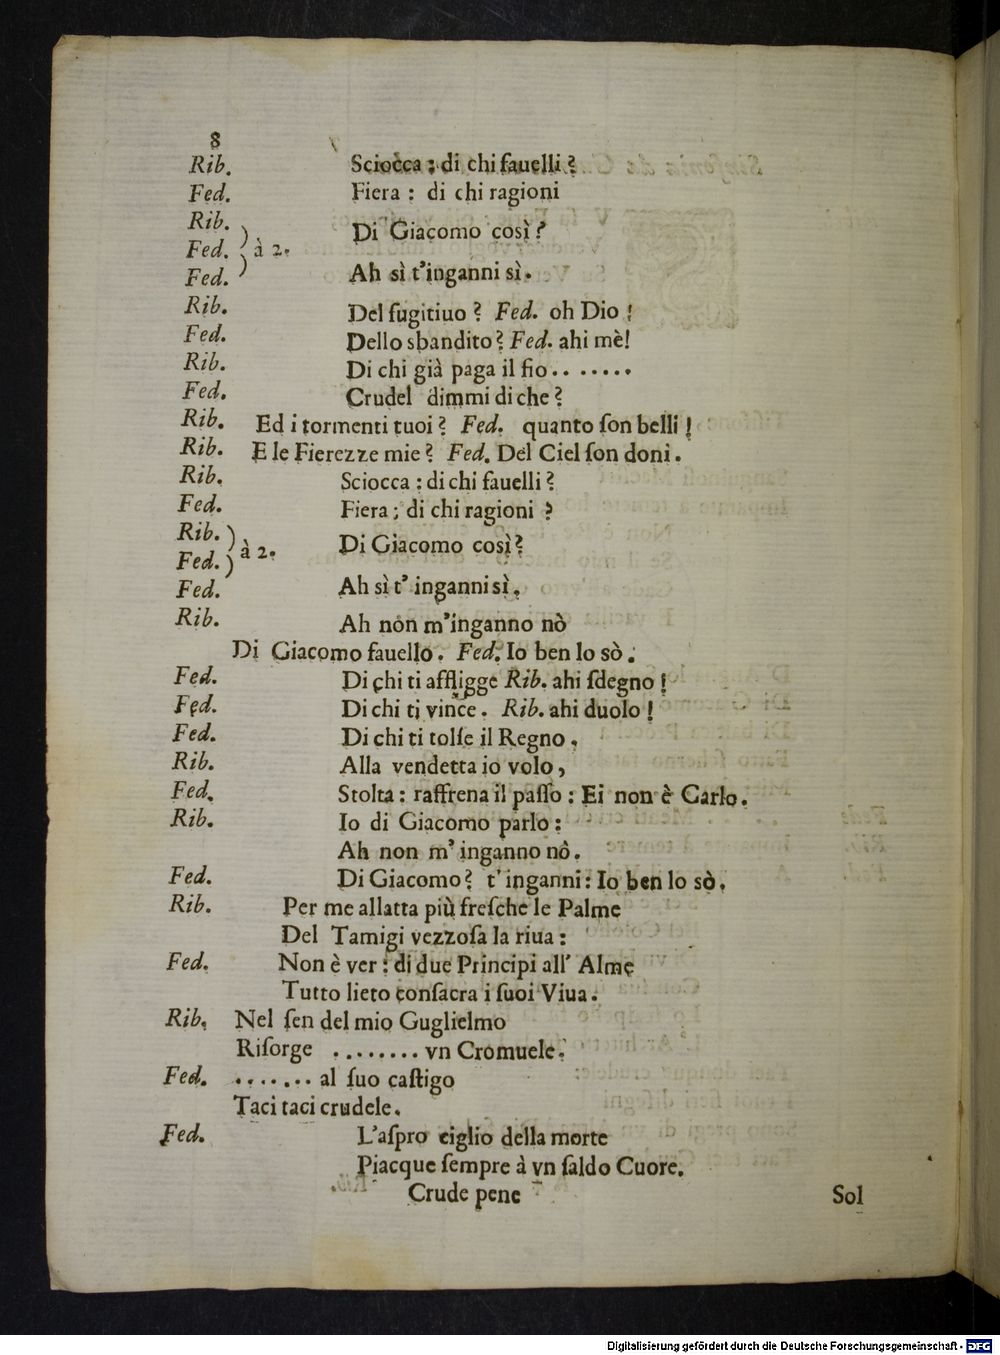 8
Rib. Sciocca : di chi fauelli ?
Fed. Fiera : di chi ragioni
Rib.
Fed. ) à 2. Di Giacomo così ?
Fed. Ah sì t'inganni sì.
Rib. Del fugitiuo ? Fed. oh Dio !
Fed. Dello sbandito ? Fed. ahi mè !
Rib. Di chi già paga il fio.. .......
Fed. Crudel dimmi di che ?
Rib. Ed i tormenti tuoi ? Fed. quanto ſon belli !
Rib. E le Fierezze mie ? Fed. Del Ciel ſon doni.
Rib. Sciocca : di chi fauelli ?
Fed. Fiera ; di chi ragioni ?
Rib. )
Fed. ) à 2. Di Giacomo così ?
Fed. Ah sì t' inganni sì.
Rib. Ah non m'inganno nò
Di Giacomo fauello. Fed. Io ben lo sò.
Fed. Di chi ti affligge Rib. ahi ſdegno !
Fed. Di chi ti vince. Rib. ahi duolo !
Fed. Di chi ti tolſe il Regno.
Rib. Alla vendetta io volo,
Fed. Stolta : raffrena il paſſo : Ei non è Carlo.
Rib. Io di Giacomo parlo :
Ah non m' inganno nò.
Fed. Di Giacomo ? t' inganni : Io ben lo sò.
Rib. Per me allatta più freſche le Palme
Del Tamigi vezzoſa la riua :
Fed. Non è ver : di due Principi all' Alme
Tutto lieto conſacra i ſuoi Viua.
Rib. Nel ſen del mio Guglielmo
Riſorge ........ vn Cromuele.
Fed. ....... al ſuo caſtigo
Taci taci crudele.
Fed. L'aſpro ciglio della morte
Piacque ſempre à vn ſaldo Cuore.
Crude pene
Sol
Digitalisierung gefördert durch die Deutsche Forschungsgemeinschaft - DFG